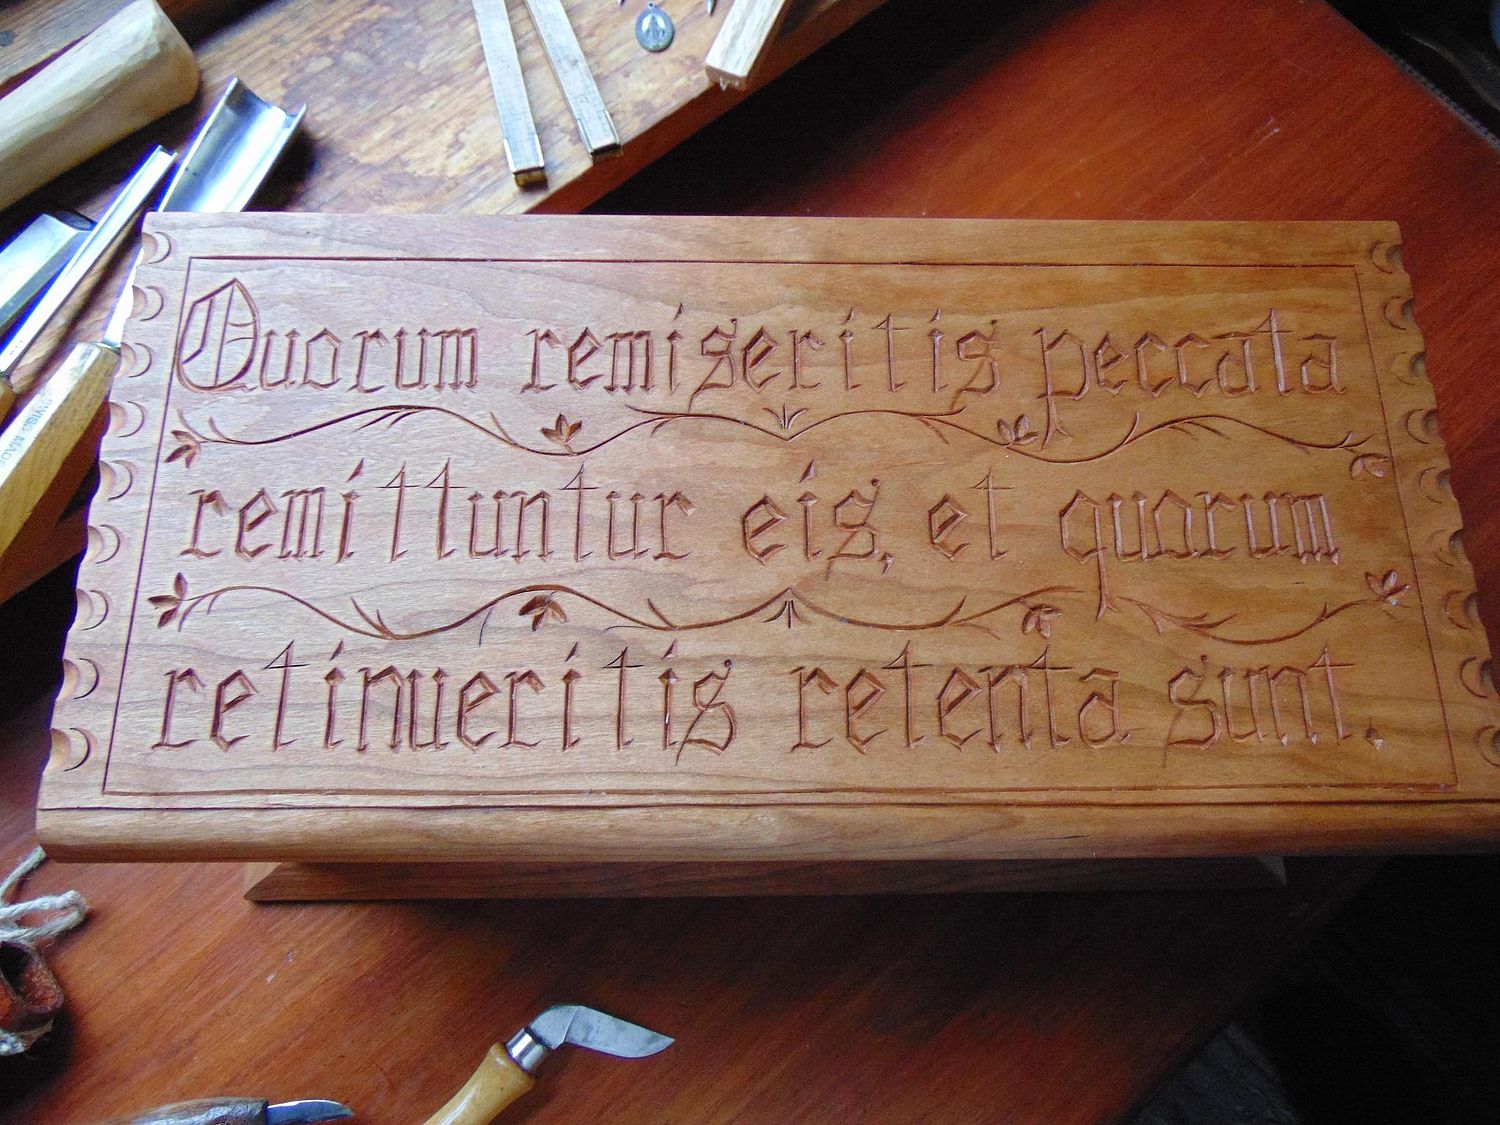 Quorum remiseritis peccata
remittuntur eis, et quorum
retinueritis retenta sunt.
SWISS MADE